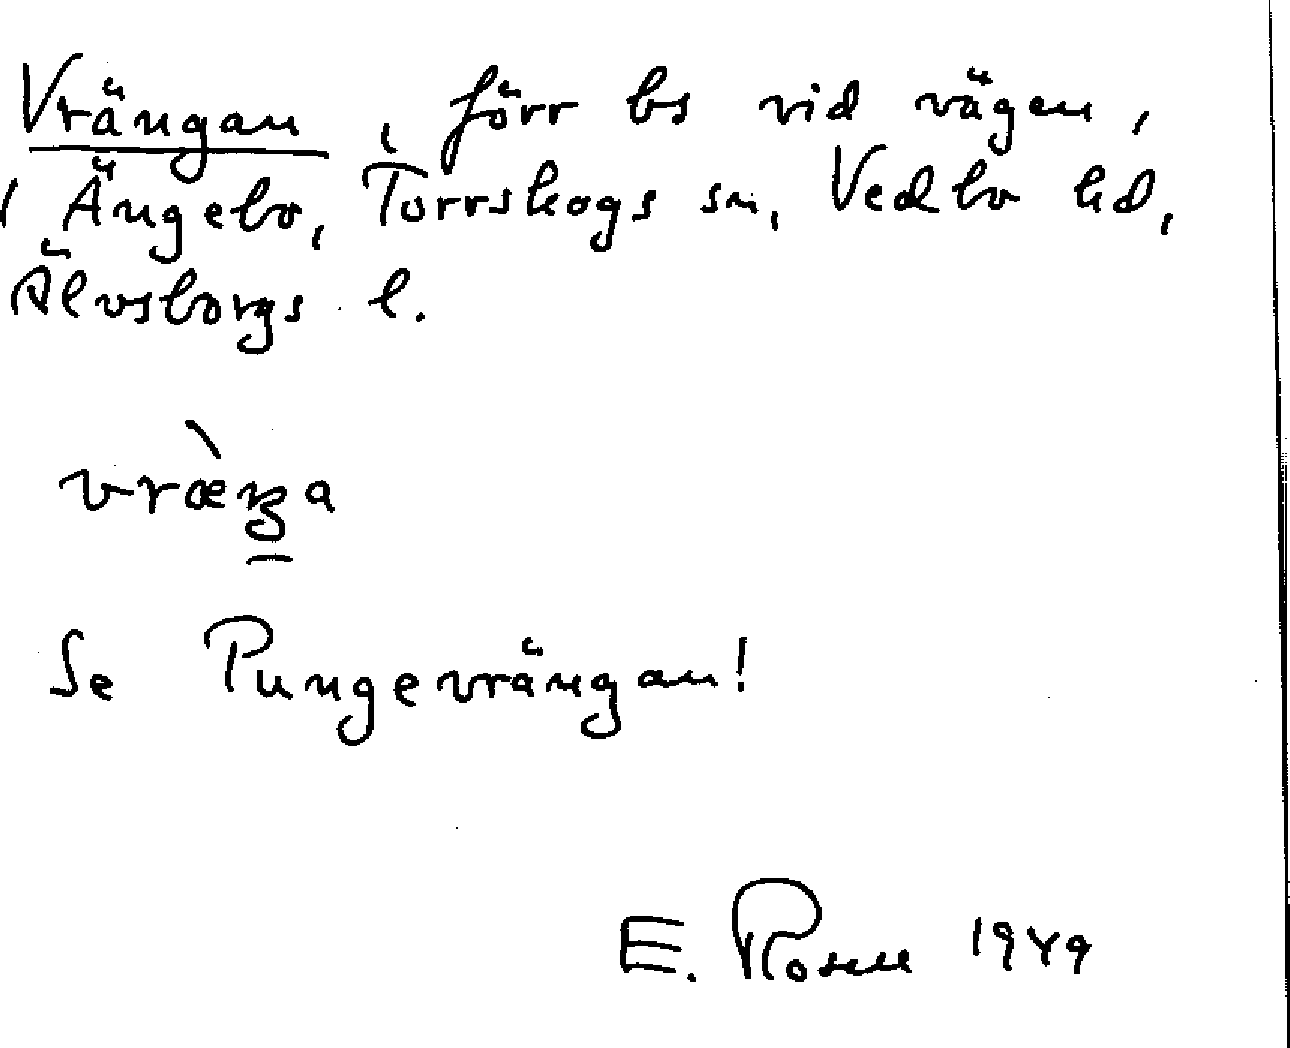 Vrängan, förr bs vid vägen,
i Ängebo, Torrskogs sn, Vedbo hd,
Älvsborgs l.
Se Pungevrängan!
E. Rosell 1949